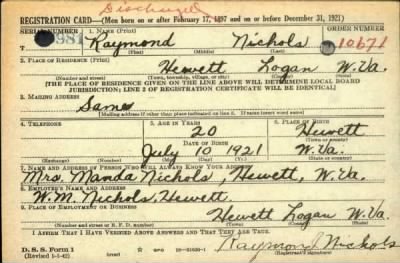 Discharged
REGISTRATION CARD—(Men born on or after February 17, 1897 and on or before December 31, 1921)
SERIAL NUMBER 1. NAME (Print) ORDER NUMBER
981 Raymond Nichols 10671
(First) (Middle) (Last)
2. PLACE OF RESIDENCE (Print)
Hewett Logan W. Va.
(Number and street) (Town, township, village, or city) (County) (State)
[THE PLACE OF RESIDENCE GIVEN ON THE LINE ABOVE WILL DETERMINE LOCAL BOARD
JURISDICTION; LINE 2 OF REGISTRATION CERTIFICATE WILL BE IDENTICAL]
3. MAILING ADDRESS
Same
[Mailing address if other than place indicated on line 2. If same insert word same]
4. TELEPHONE 5. AGE IN YEARS 6. PLACE OF BIRTH
20 Hewett
DATE OF BIRTH (Town or county)
July 10 1921 W. Va.
(Exchange) (Number) (Mo.) (Day) (Yr.) (State or country)
7. NAME AND ADDRESS OF PERSON WHO WILL ALWAYS KNOW YOUR ADDRESS
Mrs. Manda Nichols, Hewett, W. Va.
8. EMPLOYER'S NAME AND ADDRESS
W. M. Nichols, Hewett.
9. PLACE OF EMPLOYMENT OR BUSINESS
Hewett Logan W. Va.
(Number and street or R. F. D. number) (Town) (County) (State)
I AFFIRM THAT I HAVE VERIFIED ABOVE ANSWERS AND THAT THEY ARE TRUE.
Raymond Nichols
D. S. S. Form 1
(Revised 1-1-42) (over) GPO (Registrant's signature)